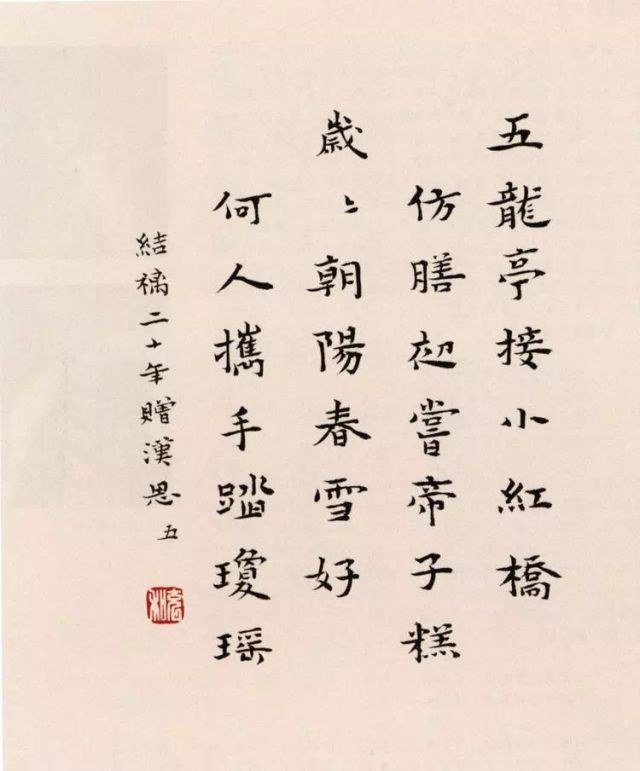 五龍亭接小紅橋
仿膳初嘗帝子糕
歲〻朝陽春雪好
何人攜手踏瓊瑶
結褵二十年贈漢思 五
充和